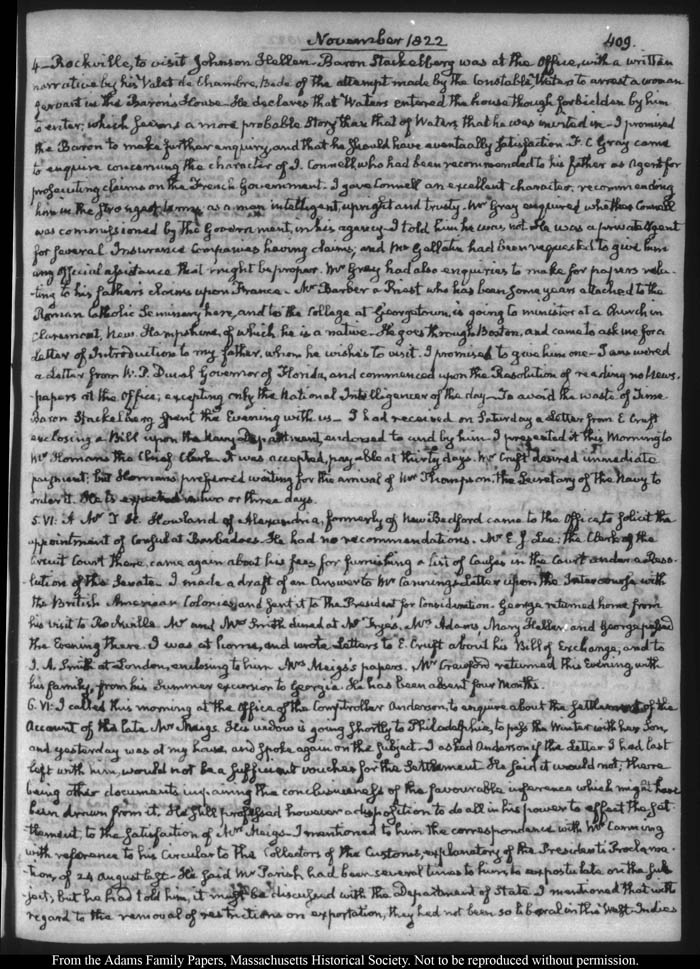 November 1822
409.
4— Rockville, to visit Johnson Hellen— Baron Stackelberg was at the Office, with a written
narrative by his Valet de Chambre, Bede of the attempt made by the Constable Waters to arrest a woman
servant in the Baron's House. He declares that Waters entered the house though forbidden by him
to enter; which seems a more probable story than that of Waters that he was invited in— I promised
the Baron to make further enquiry, and that he should have eventually satisfaction. F. C. Gray came
to enquire concerning the character of I. Connell, who had been recommended to his father as Agent for
prosecuting claims on the French Government. I gave Connell an excellent character, recommending
him in the strongest terms as a man intelligent, upright and trusty. Mr Gray enquired whether Connell
was commissioned by the Government, in his agency. I told him he was not. He was a private Agent
for several Insurance Companies having claims; and Mr Gallatin had been requested to give him
any official assistance that might be proper. Mr Gray had also enquiries to make for papers rela-
ting to his father's claims upon France.— Mr Barber a Priest who has been some years attached to the
Roman Catholic Seminary here, and to the College at Georgetown, is going to minister at a Church in
Claremont, New Hampshire, of which he is a native. He goes through Boston, and came to ask me for a
Letter of Introduction to my father, whom he wishes to visit. I promised to give him one— I answered
a Letter from W. P. Duval Governor of Florida, and commenced upon the Resolution of reading no News-
papers at the Office; excepting only the National Intelligencer of the day— To avoid the waste of Time
Baron Stackelberg spent the Evening with us— I had received on Saturday a Letter from E Cruft
enclosing a Bill upon the Navy Department, endorsed to and by him. I presented it this Morning to
Mr Homans the Chief Clerk. It was accepted, payable at thirty days. Mr Cruft desired immediate
payment; but Homans preferred waiting for the arrival of Mr Thompson, the Secretary of the Navy to
order it. He is expected in two or three days.
5. VI: A Mr I H. Howland of Alexandria, formerly of New Bedford came to the Office, to solicit the
appointment of Consul at Barbadoes. He had no recommendations. Mr E. J. Lee, the Clerk of the
Circuit Court there, came again about his fees for furnishing a List of Causes in the Court under a Reso-
lution of the Senate. I made a draft of an Answer to Mr Canning's Letter upon the Intercourse with
the British American Colonies, and sent it to the President for Consideration. George returned home from
his visit to Rockville. Mr and Mrs Smith dined at Mr Frye's. Mrs Adams, Mary Hellen, and George passed
the Evening there. I was at home, and wrote Letters to E. Cruft about his Bill of Exchange, and to
I. A. Smith at London, enclosing to him Mrs Meigs's papers. Mr Crawford returned this Evening with
his family, from his Summer excursion to Georgia. He has been absent four Months.
6. VI: I called this morning at the Office of the Comptroller Anderson, to enquire about the settlement of the
Account of the late Mr Meigs. His widow is going shortly to Philadelphia, to pass the Winter with her Son,
and yesterday was at my house, and spoke again on the subject. I asked Anderson if the Letter I had last
left with him, would not be a sufficient voucher for the Settlement. He said it would not; there
being other documents impairing the conclusiveness of the favourable inference which might have
been drawn from it. He still professed however a disposition to do all in his power to effect the set-
tlement, to the satisfaction of Mrs Meigs. I mentioned to him the correspondence with Mr Canning
with reference to his Circular to the Collectors of the Customs, explanatory of the President's Proclama-
tion, of 24 August last. He said Mr Parish had been several times to him, to expostulate on the sub-
ject; but he had told him, it must be discussed with the Department of State. I mentioned that with
regard to the removal of restrictions on exportation, they had not been so liberal in the West-Indies
From the Adams Family Papers, Massachusetts Historical Society. Not to be reproduced without permission.